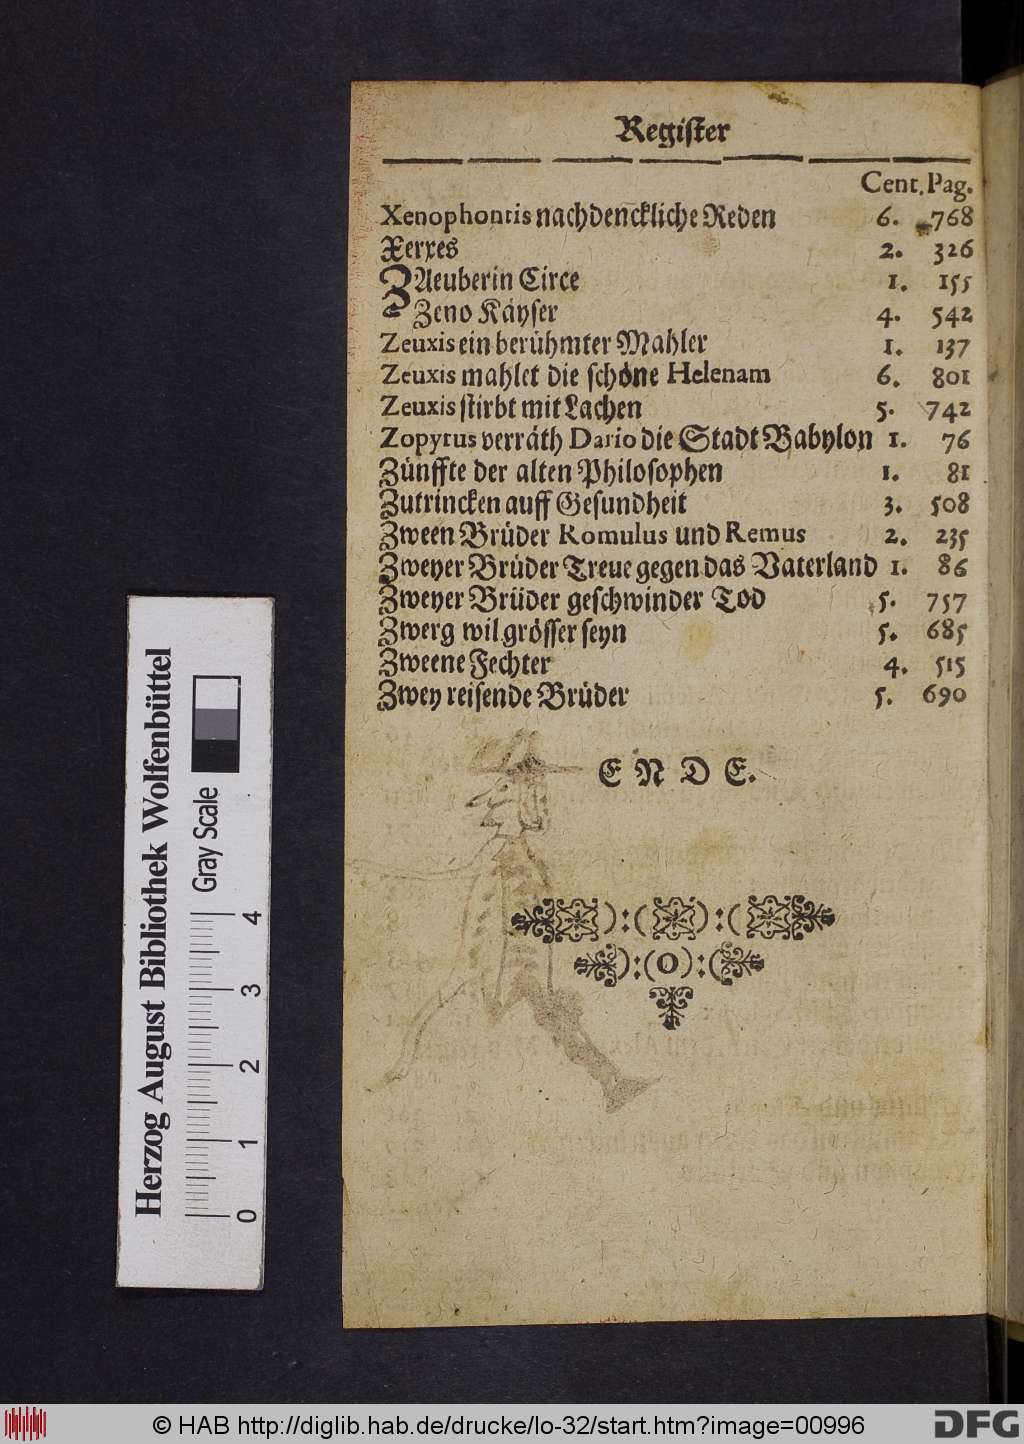 Register
Cent. Pag.
Xenophontis nachdenckliche Reden 6. 768
Xerxes 2. 326
ZAeuberin Circe 1. 155
Zeno Käyser 4. 542
Zeuxis ein berühmter Mahler 1. 137
Zeuxis mahlet die schöne Helenam 6. 801
Zeuxis stirbt mit Lachen 5. 742
Zopyrus verräth Dario die Stadt Babylon 1. 76
Zünffte der alten Philosophen 1. 81
Zutrincken auff Gesundheit 3. 508
Zween Brüder Romulus und Remus 2. 235
Zweyer Brüder Treue gegen das Vaterland 1. 86
Zweyer Brüder geschwinder Tod 5. 757
Zwerg wil grösser seyn 5. 685
Zweene Fechter 4. 515
Zwey reisende Brüder 5. 690
ENDE.
Herzog August Bibliothek Wolfenbüttel
Gray Scale
0 1 2 3 4
© HAB http://diglib.hab.de/drucke/lo-32/start.htm?image=00996
DFG